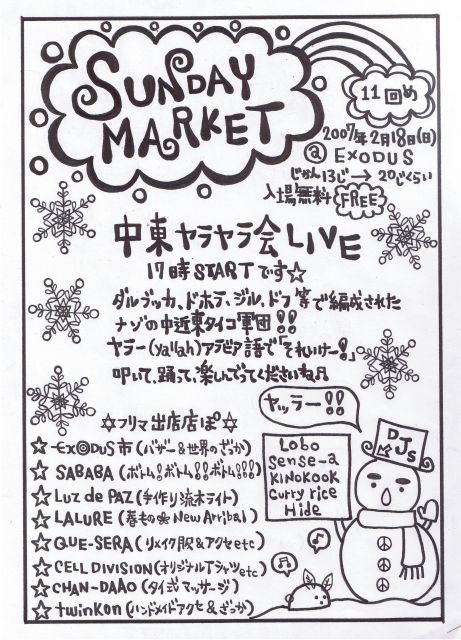 SUNDAY
MARKET
11回め
2007年2月18日(日)
@ EXODUS
じかん13じ→20じくらい
入場無料 FREE
中東ヤラヤラ会LIVE
17時STARTです☆
ダルブッカ、ドホラ、ジル、ドフ等で編成された
ナゾの中近東タイコ軍団!!
ヤラー(yallah)アラビア語で「それいけー!」
叩いて、踊って、楽しんでってくださいね♫
ヤッラー!!
☆フリマ出店店ぽ☆
☆EXODUS市(バザー&世界のざっか)
☆SABABA(ボトム!ボトム!!ボトム!!!)
☆LUZ de PAZ(手作り流木ライト)
☆LALURE(春もの New Arrival)
☆QUE-SERA(リメイク服&アクセetc)
☆CELL DIVISION(オリジナルTシャツetc)
☆CHAN-DAAO(タイ式マッサージ)
☆twinkon(ハンドメイドアクセ&ざっか)
Lobo
Sense-a
KINOKOOK
Curry rice
Hide
DJs